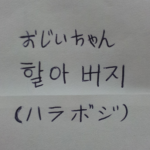 おじいちゃん
할아버지
(ハラボジ)